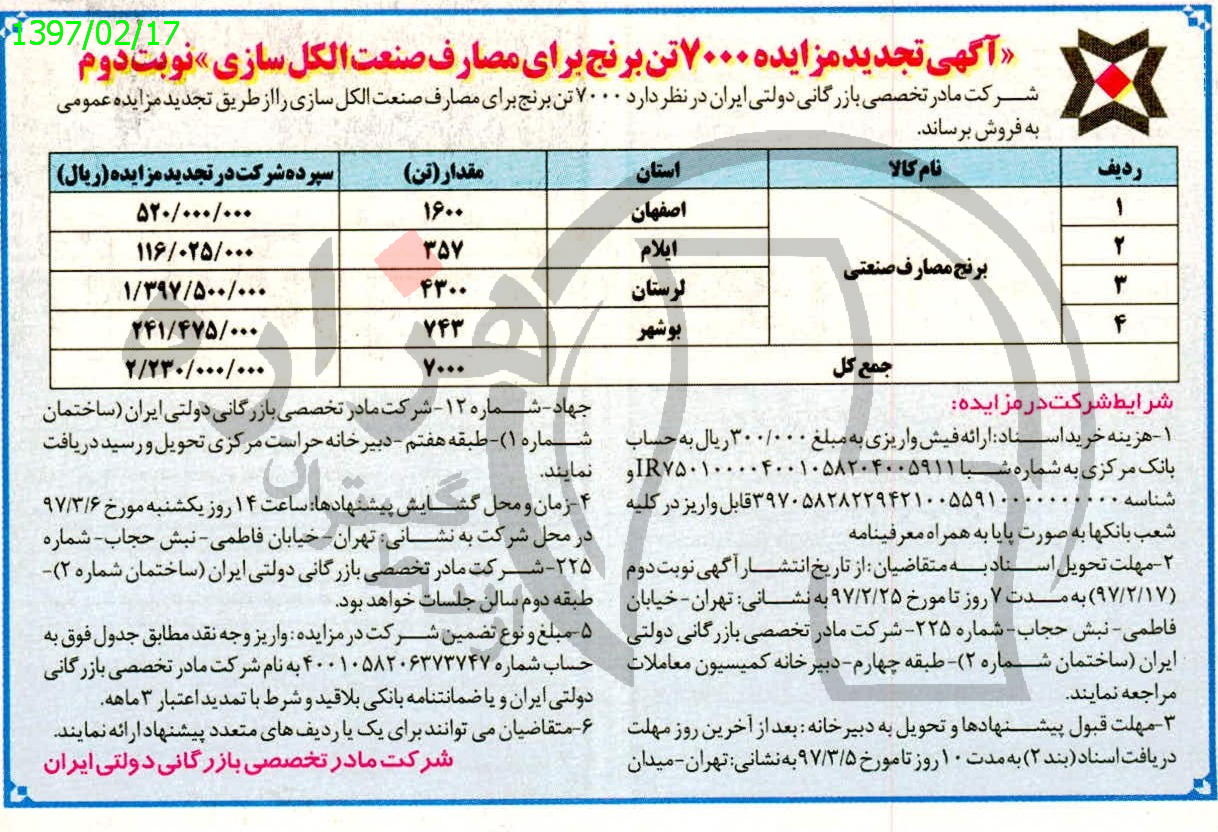 1397/02/17
«آگهی تجدید مزایده ۷۰۰۰ تن برنج برای مصارف صنعت الکل سازی» نوبت دوم
شرکت مادر تخصصی بازرگانی دولتی ایران در نظر دارد ۷۰۰۰ تن برنج برای مصارف صنعت الکل سازی را از طریق تجدید مزایده عمومی
به فروش برساند.
ردیف نام کالا استان مقدار (تن) سپرده شرکت در تجدید مزایده (ریال)
۱ اصفهان ۱۶۰۰ ۵۲۰/۰۰۰/۰۰۰
۲ ایلام ۳۵۷ ۱۱۶/۰۲۵/۰۰۰
برنج مصارف صنعتی
۳ لرستان ۴۳۰۰ ۱/۳۹۷/۵۰۰/۰۰۰
۴ بوشهر ۷۴۳ ۲۴۱/۴۷۵/۰۰۰
جمع کل ۷۰۰۰ ۲/۲۳۰/۰۰۰/۰۰۰
شرایط شرکت در مزایده:
۱-هزینه خرید اسناد: ارائه فیش واریزی به مبلغ ۳۰۰/۰۰۰ ریال به حساب
بانک مرکزی به شماره شبا IR۷۵۰۱۰۰۰۰۴۰۰۱۰۵۸۲۰۴۰۰۵۹۱۱ و
شناسه ۳۹۷۰۵۸۲۸۲۲۹۴۲۱۰۰۵۵۹۱۰۰۰۰۰۰۰۰۰۰ قابل واریز در کلیه
شعب بانکها به صورت پایا به همراه معرفینامه
۲-مهلت تحویل اسناد به متقاضیان: از تاریخ انتشار آگهی نوبت دوم
(۹۷/۲/۱۷) به مدت ۷ روز تا مورخ ۹۷/۲/۲۵ به نشانی: تهران-خیابان
فاطمی- نبش حجاب- شماره ۲۲۵- شرکت مادر تخصصی بازرگانی دولتی
ایران (ساختمان شماره ۲)- طبقه چهارم-دبیرخانه کمیسیون معاملات
مراجعه نمایند.
۳-مهلت قبول پیشنهادها و تحویل به دبیرخانه: بعد از آخرین روز مهلت
دریافت اسناد (بند ۲) به مدت ۱۰ روز تا مورخ ۹۷/۳/۵ به نشانی: تهران-میدان
جهاد-شماره ۱۲-شرکت مادر تخصصی بازرگانی دولتی ایران (ساختمان
شماره ۱)-طبقه هفتم -دبیرخانه حراست مرکزی تحویل و رسید دریافت
نمایند.
۴-زمان و محل گشایش پیشنهادها: ساعت ۱۴ روز یکشنبه مورخ ۹۷/۳/۶
در محل شرکت به نشانی: تهران-خیابان فاطمی- نبش حجاب- شماره
۲۲۵-شرکت مادر تخصصی بازرگانی دولتی ایران (ساختمان شماره ۲)-
طبقه دوم سالن جلسات خواهد بود.
۵-مبلغ و نوع تضمین شرکت در مزایده: واریز وجه نقد مطابق جدول فوق به
حساب شماره ۴۰۰۱۰۵۸۲۰۶۳۷۳۷۴۷ به نام شرکت مادر تخصصی بازرگانی
دولتی ایران و یا ضمانتنامه بانکی بلاقید و شرط با تمدید اعتبار ۳ ماهه.
۶-متقاضیان می توانند برای یک یا ردیف های متعدد پیشنهاد ارائه نمایند.
شرکت مادر تخصصی بازرگانی دولتی ایران
هزاره